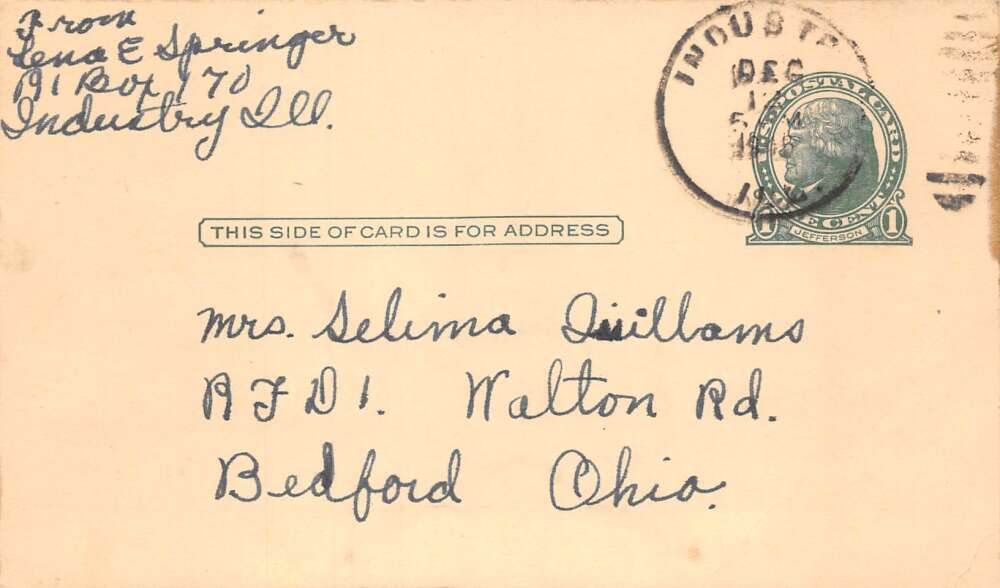 From
Lena E Springer
R1 Box 170
Industry Ill.
INDUST
DEC
1948
POSTAL CARD
ONE CENT
1 1
JEFFERSON
THIS SIDE OF CARD IS FOR ADDRESS
Mrs. Selima Quillams
R F D 1. Walton Rd.
Bedford Ohio.